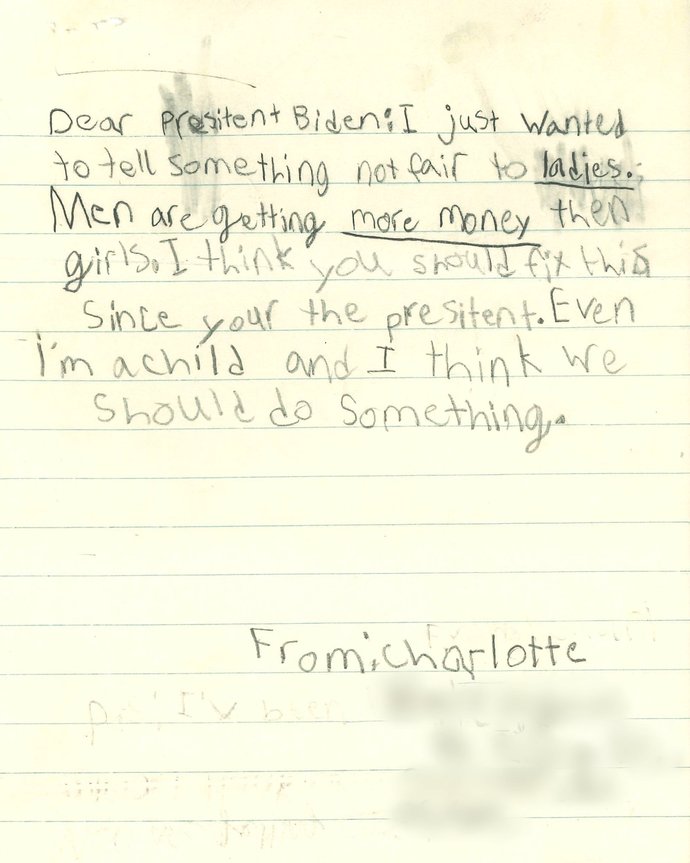 Dear Presitent Biden: I just wanted
to tell something not fair to ladies.
Men are getting more money then
girls. I think you should fix this
Since your the presitent. Even
I'm a child and I think we
should do something.
From: charlotte